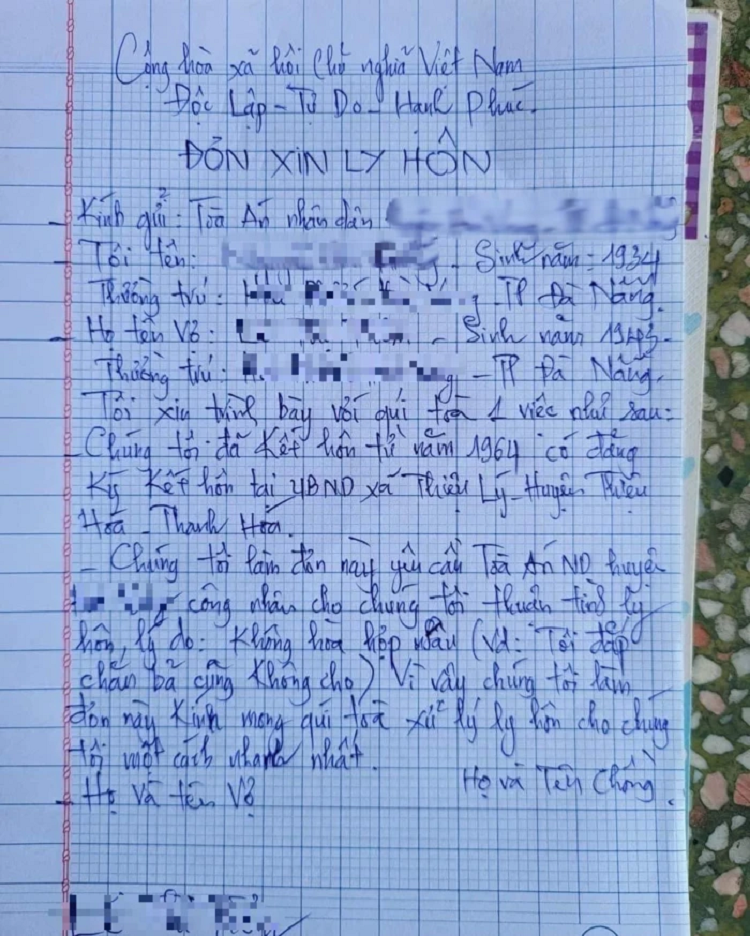 Cộng hòa xã hội Chủ nghĩa Việt Nam
Độc Lập - Tự Do - Hạnh Phúc.
ĐƠN XIN LY HÔN
Kính gửi: Tòa Án nhân dân
Tôi tên: - Sinh năm: 1934
Thường trú: - TP Đà Nẵng.
Họ tên Vợ: - Sinh năm 1943.
Thường trú: - TP Đà Nẵng.
Tôi xin trình bày với quí toà 1 việc như sau:
Chúng tôi đã kết hôn từ năm 1964 có đăng
Ký Kết hôn tại UBND xã Thiệu Lý - Huyện Thiệu
Hoá - Thanh Hóa.
- Chúng tôi làm đơn này yêu cầu Toà Án ND huyện
công nhân cho chúng tôi thuận tình ly
hôn, lý do: Không hòa hợp nhau (Vd: Tôi đắp
chăn bả cũng Không cho) Vì vậy chúng tôi làm
đơn này Kính mong quí toà xử lý ly hôn cho chúng
tôi một cách nhanh nhất.
Họ và tên Vợ Họ và Tên Chồng.